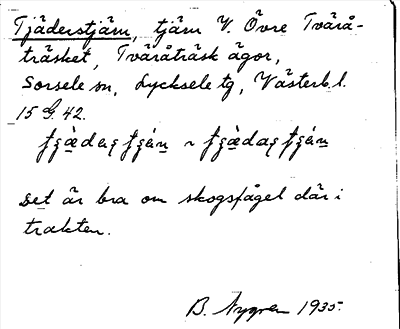 Tjäderstjärn, tjärn V. Övre Tvärå-
träsket, Tväråträsk ägor,
Sorsele sn, Lycksele tg, Västerb. l.
15 G. 42.
Det är bra om skogsfågel där i
trakten.
B. Nygren 1935.